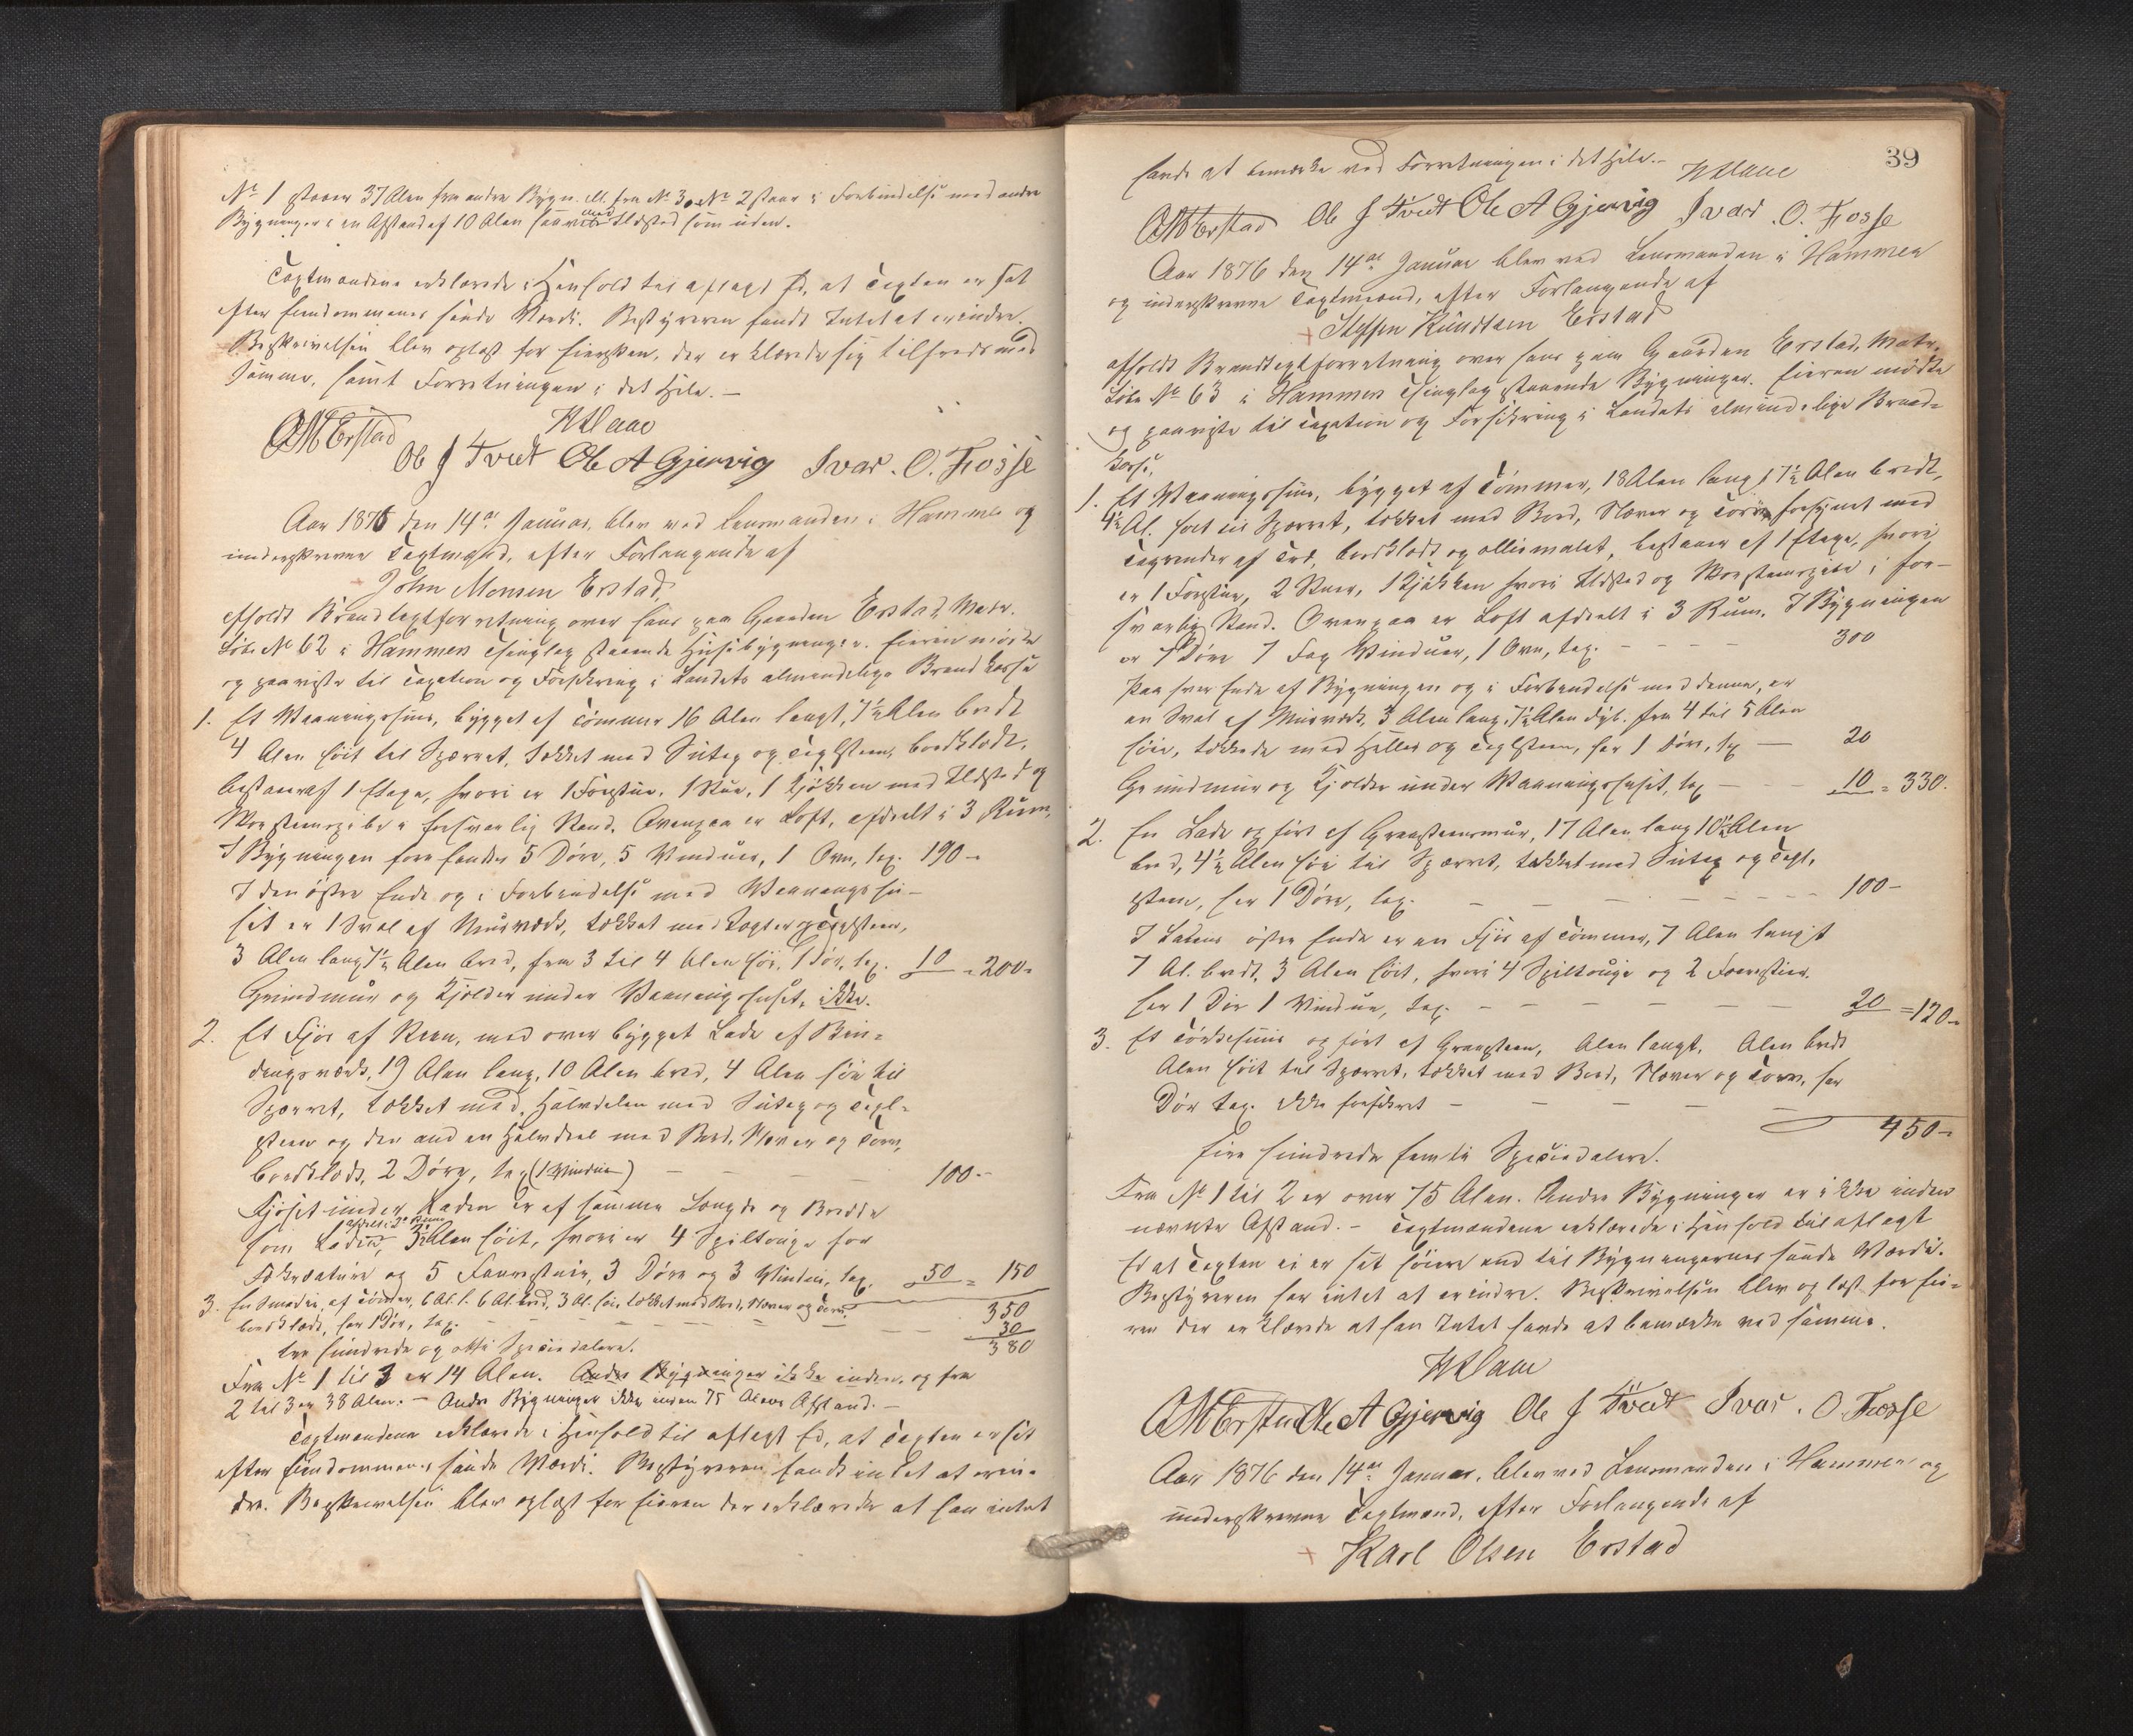 No 1 staaer 37 Alen fra andre Bygn. ell. fra No 3. No 2 staar i Forbindelse med andre
Bygninger i en Afstand af 10 Alen saavel med Ildsted som uden.
Taxtmændene erklærede i Henhold til aflagt Ed, at Taxten er sat
efter Eiendommenes sande Værdi. Bestyreren fandt Intet at erindre.
Beskrivelsen blev oplæst for Eiersken, der erklærede sig tilfreds med
samme, samt Forretningen i det Hele. –
OMErstad
Ole J Tveit Ole A Gjervig Ivar. O. Fosse
Aar 1876 den 14de Januar, blev ved Lensmanden i Hammer og
underskrevne Taxtmænd, efter Forlangende af
John Monsen Erstad,
afholdt Brandtaxtforretning over hans paa Gaarden Erstad, Matr.
Løbe No 62 i Hammers Thinglag staaende Husebygninger. Eieren mødte
og paaviste til Taxation og Forsikring i Landets almindelige Brandkasse
1. Et Vaaningshuus, bygget af Tømmer 16 Alen langt, 7½ Alen bredt
4 Alen høit til Sparret, tækket med Sutag og Taglsteen, bordklædt,
bestaar af 1 Etage, hvori er 1 Forstue, 1 Stue, 1 Kjøkken med Ildsted og
Skorsteenspibe i forsvarlig Stand. Ovenpaa er Loft, afdeelt i 3 Rum.
I Bygningen forefindes 5 Døre, 5 Vinduer, 1 Ovn, tax. 190 –
I den østre Ende og i Forbindelse med Vaaningshu-
set er 1 Sval af Muurværk, tækket med Sutag og Taglsteen,
3 Alen lang 7½ Alen bred, fra 3 til 4 Alen høi, 1 Dør, tax. 10 = 200 =
Grundmur og Kjelder under Vaaningshuset, ikke.
2. Et Fjøs af Steen, med over bygget Lade af Bin-
dingsværk, 19 Alen lang, 10 Alen bred, 4 Alen høi til
Sparret, tækket med, Halvdelen med Sutag og Tagl-
steen og den anden Halvdeel med Bord, Næver og Torv,
bordklædt, 2 Døre, tax (1 Vindue) – – – 100 –
Fjøset under Laden er af samme Længde og Bredde
som Laden, afdeelt i 2 Rum 3½ Alen høit, hvori er 4 Spiltouge for
Fækreature og 5 Faarestier, 3 Døre og 3 Vinduer, tax. 50 = 150
3. En Smedie, af Tømmer, 6 Al. l. 6 Al. bred, 3 Al. høi, tækket med Bord, Næver og Torv. 350
bordklædt, har 1 Dør, tax. – – – 30
tre hundrede og otti Speciedalere. 380
Fra No 1 til 3 er 14 Alen. Andre Bygninger ikke inden, og fra
2 til 3 er 38 Alen. – Andre Bygninger ikke inden 75 Alens Afstand. –
Taxtmændene erklærede i Henhold til aflagt Ed, at Taxten er sat
efter Eiendommenes sande Værdi. Bestyreren fandt intet at erin-
dre. Beskrivelsen blev oplæst for Eieren der erklærede at han intet
39
havde at bemærke ved Forretningen i det Hele. –
OMErstad Ole J Tveit Ole A Gjervig Ivar. O. Fosse
Aar 1876 den 14de Januar blev ved Lensmanden i Hammer
og underskrevne Taxtmænd, efter Forlangende af
Steffen Knudsen Erstad
afholdt Brandtaxtforretning over hans paa Gaarden Erstad, Matr.
Løbe No 63 i Hammers Thinglag staaende Bygninger. Eieren mødte
og paaviste til Taxation og Forsikring i Landets almindelige Brand-
kasse,
1. Et Vaaningshuus, bygget af Tømmer, 18 Alen langt 7½ Alen bredt,
4½ Al. høit til Sparret, tækket med Bord, Næver og Torv forsynet med
Tagrender af Træ, bordklædt og olliemalet, bestaaer af 1 Etage, hvori
er 1 Forstue, 2 Stuer, 1 Kjøkken hvori Ildsted og Skorsteenspibe i for-
svarlig Stand. Ovenpaa er Loft afdeelt i 3 Rum. I Bygningen
er 7 Døre 7 Fag Vinduer, 1 Ovn, tax. – – – 300
Paa hver Ende af Bygningen og i Forbindelse med denne, er
en Sval af Muurværk, 3 Alen lang, 7½ Alen dyb, fra 4 til 5 Alen
høie, tækkede med Heller og Taglsteen, har 1 Dør, tax – 20
Grundmur og Kjelder under Vaaningshuset, tax – – – 10 = 330.
2. En Lade opført af Graasteensmuur, 17 Alen lang 10½ Alen
bred, 4½ Alen høi til Sparret, tækket med Sutag og Tagl-
steen, har 1 Døre, tax. – – – 100 –
I Ladens østre Ende er en Fjøs af Tømmer, 7 Alen langt
7 Al. bredt, 3 Alen høit, hvori 4 Spiltouge og 2 Faarestier.
har 1 Dør 1 Vindue, tax. – – – 20 = 120 –
3. Et Tørkehuus opført af Graasteen, Alen langt, Alen bredt
Alen høit til Sparret, tækket med Bord, Næver og Torv, har
Dør tax. ikke forsikret – – –
450 –
fire hundrede femti Speciedalere.
Fra No 1 til 2 er over 75 Alen. Andre Bygninger er ikke inden
nævnte Afstand. – Taxtmændene erklærede i Henhold til aflagt
Ed at Taxten ei er sat høiere end til Bygningernes sande Værdi.
Bestyreren har intet at erindre. Beskrivelsen blev oplæst for Eie-
ren der erklærede at han Intet havde at bemærke ved samme.
OMErstad Ole A Gjervig Ole J Tveit Ivar. O. Fosse
Aar 1876 den 14de Januar, blev ved Lensmanden i Hammer og
underskrevne Taxtmænd, efter Forlangende af
Karl Olsen Erstad